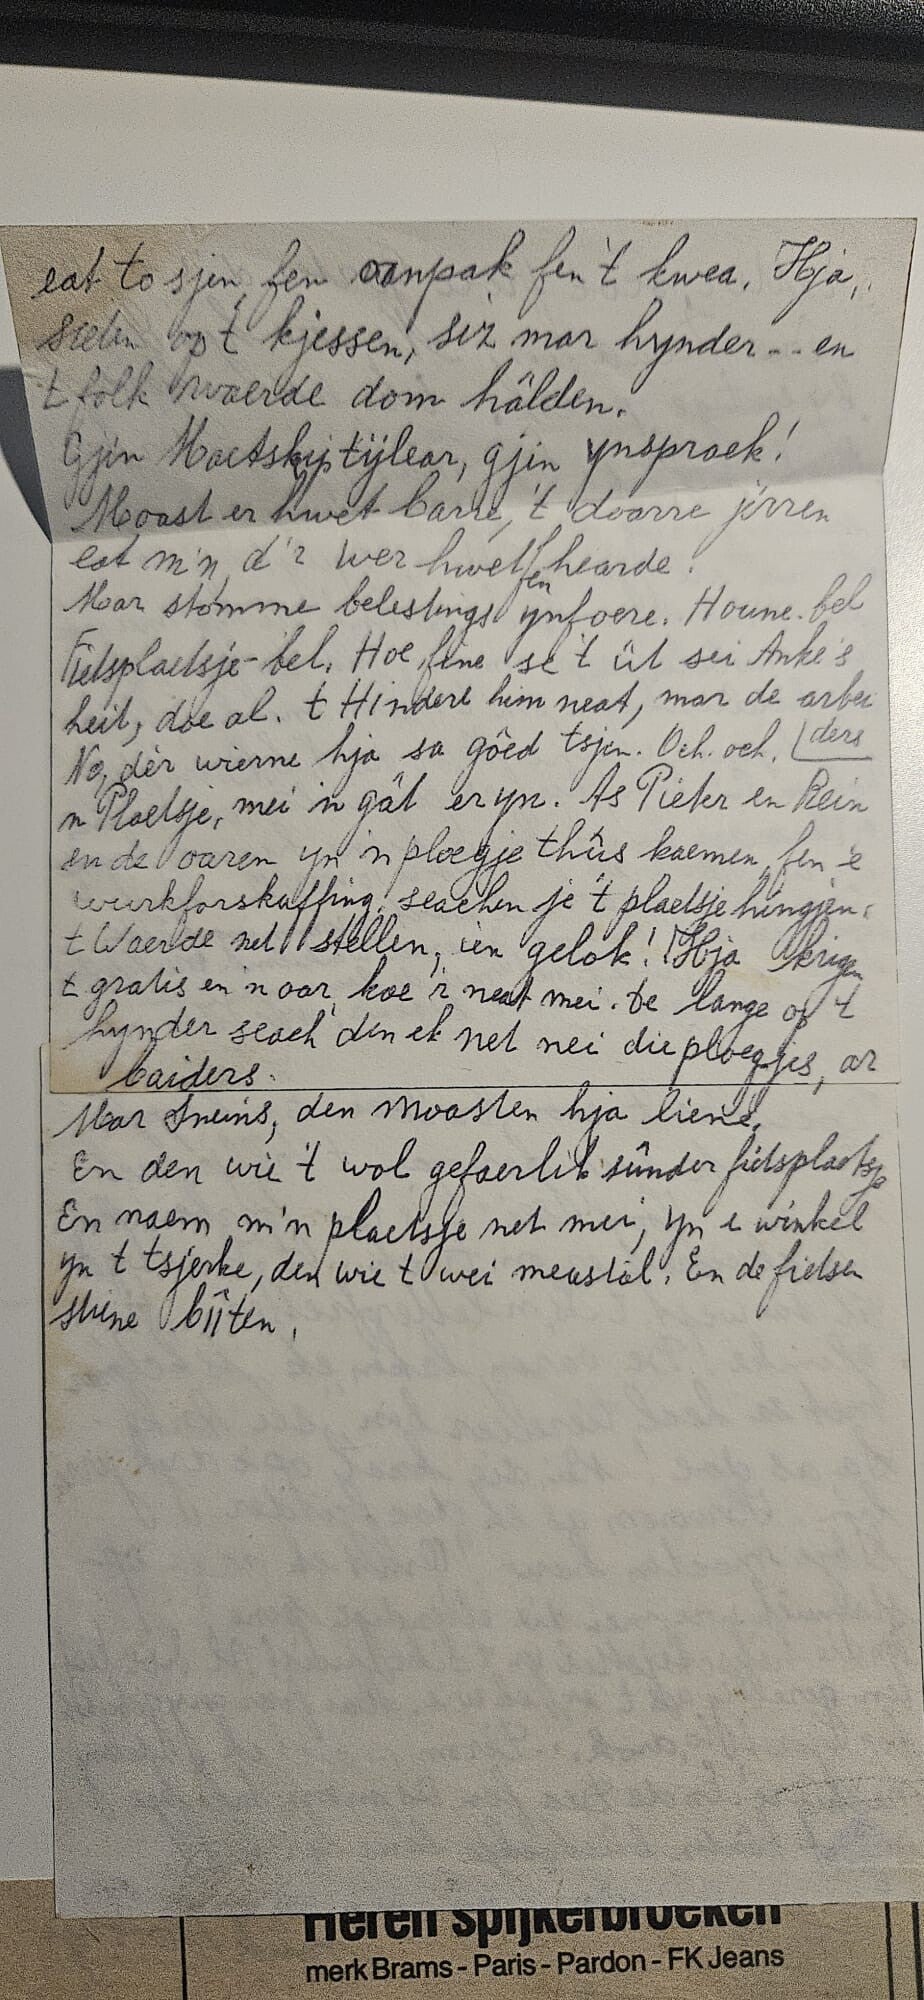 eat to sjen, fen oanpak fen 't kwea. Hja,
sieten op 't kjessen, siz mar hynder -- en
t folk waerde dom hâlden.
Gjin Maetskiptijlear, gjin ynspraek!
Moast er hwet barre, 't doarre jirren
eat m'n, d'r wer hwet fen hearde.
Mar stomme belestings ynfoere. Houne-bel
Fietsplaetsje-bel. Hoe fine se 't út sei Anke's
heit, doe al. t Hindere him neat, mar de arbei
ders
No, dêr wierne hja sa goed tsjin. Och. och.
n Plaetsje, mei in gat er yn. As Pieter en Rein
en de oaren yn 'n ploegje thús kaemen, fen 'e
wurkforskaffing, seachen je 't plaetsje hingjen.
t Waerde net stellen, ien gelok! Hja krigen
t gratis en 'n oar koe 'r neat mei. De lange op 't
hynder seach den ek net nei die ploegjes, ar
baiders.
Mar Sneins, den moasten hja liene.
En den wie 't wol gefaerlik sûnder fietsplaetsje
En naem m'n plaetsje net mei, yn e winkel
yn t tsjerke, den wie t wei meastal. En de fietsen
stiene bûten.
Heren spijkerbroeken
merk Brams - Paris - Pardon - FK Jeans